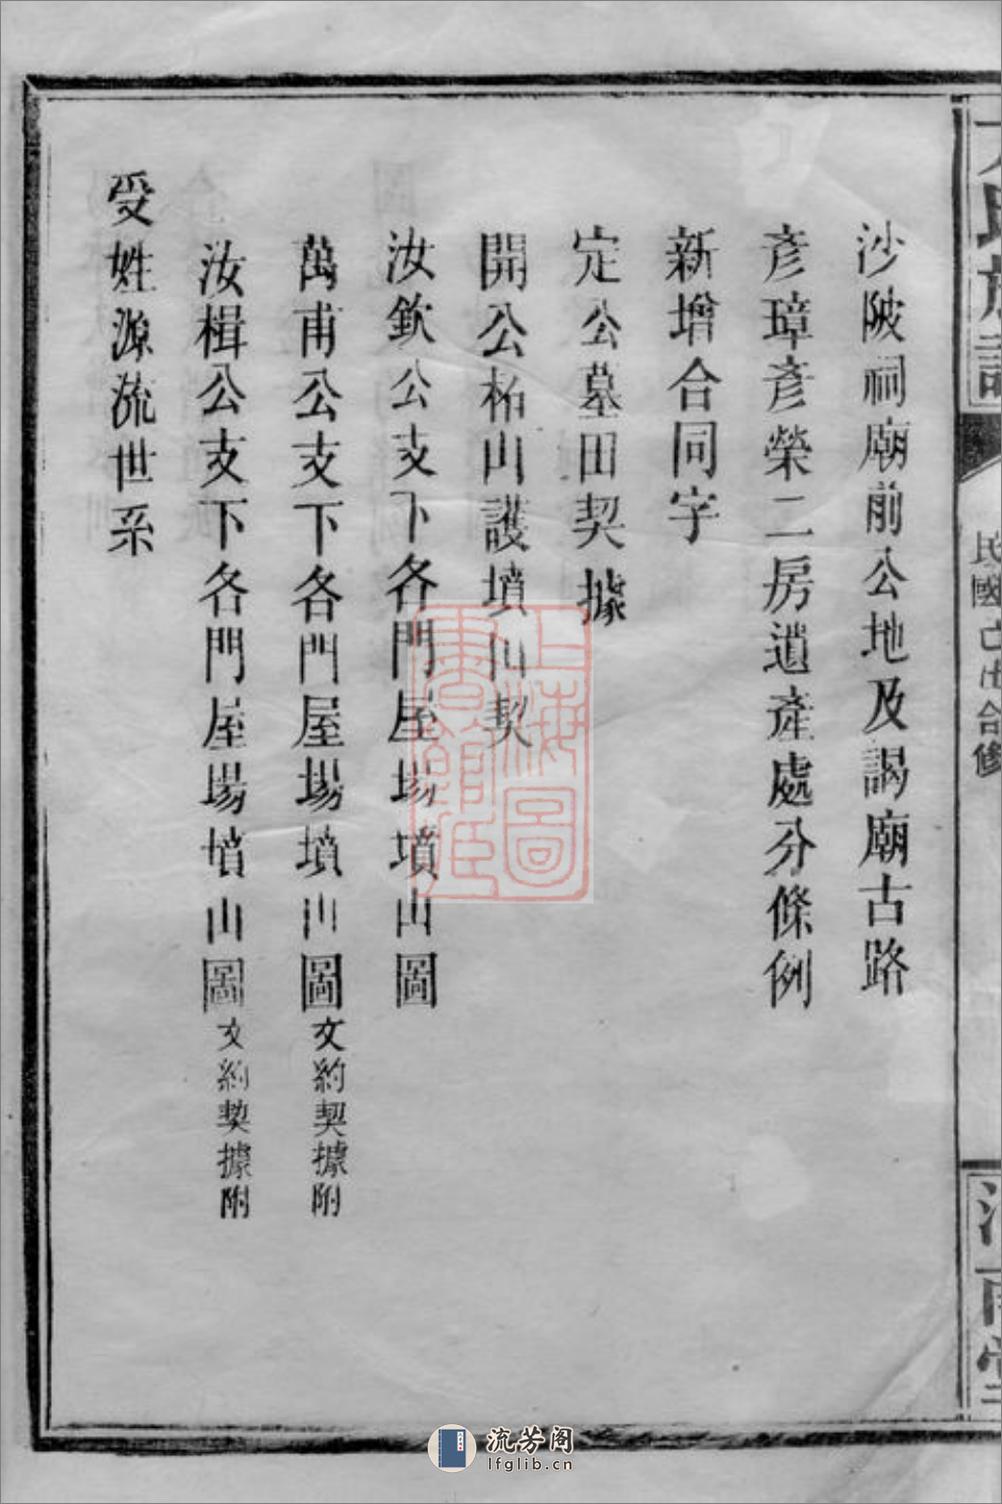 沙陂祠廟前公地及謁廟古路
彥璋彥榮二房遺產處分條例
新增合同字
定公墓田契據
開公柘山護墳山契
汝欽公支下各門屋場墳山圖
萬甫公支下各門屋場墳山圖文約契據附
汝楫公支下各門屋場墳山圖文約契據附
受姓源流世系
民國合修
上海圖書館藏
流芳阁
lfglib.cn